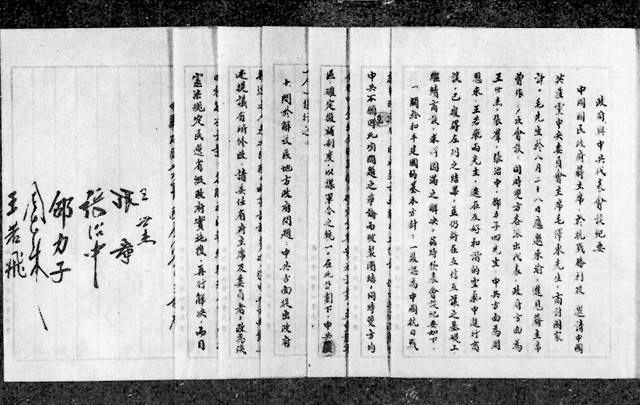 政府與中共代表會談紀要
中國國民政府蔣主席於抗戰勝利後，邀請中國
共產黨中央委員會主席毛澤東先生，商討國家大
計。毛先生於八月二十八日應邀來渝，進見蔣主席，
曾作多次會談，同時雙方各派出代表，政府方面為
王世杰、張羣、張治中、邵力子四先生，中共方面為周
恩來、王若飛兩先生，迭在友好和諧的空氣中進行商
談，已獲得左列之結果，並仍將在互信互讓之基礎上，
繼續商談，求得圓滿之解決。茲特發表會談紀要如下：
一、關於和平建國的基本方針，一致認為中國抗日戰
中共不願因此項問題之爭論而破裂團結，同時雙方均
區，確定徵補制度，以謀軍令之統一。在此計劃下，中共
十、關於解放區地方政府問題，中共方面提出政府
述提議有所修改，請委任省府主席及委員者，改為陝
憲法規定民選省級政府實施後，再行解決，而目
王世杰
張羣
張治中
邵力子
周恩來
王若飛